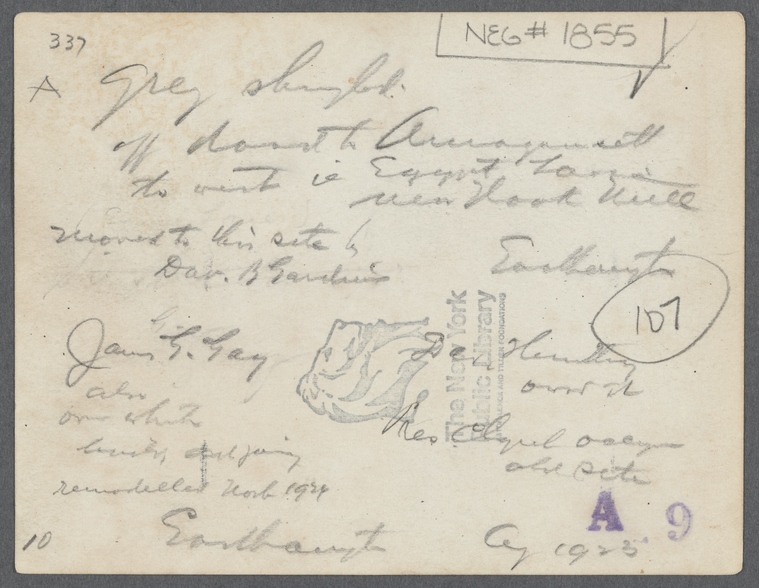 337
NEG# 1855
A Grey shingled.
off road to Amagansett
to west ie Egypt Lane
near Hook Mill
moved to this site by
Dav. B Gardiner
Easthampton
107
James G. Gay
also
own white
house, adjoining
remodelled
The New York
Public Library
Astor, Lenox and Tilden Foundations
own it
Mrs occupy
old site
Easthampton
Ag 1923
A 9
10